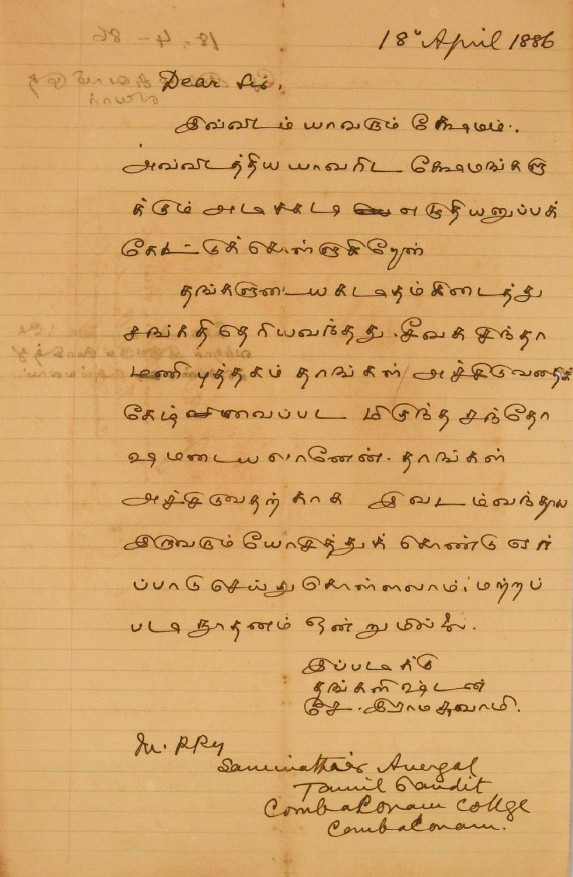 18th April 1886
Dear Sir,
இவ்விடம் யாவரும் க்ஷேமம்.
அவ்விடத்திய யாவரிட க்ஷேமங்களு
க்கும் அடிக்கடி எழுதியனுப்பக்
கேட்டுக் கொள்ளுகிறேன்
தங்களுடைய கடிதம் கிடைத்து
சங்கதி தெரியவந்தது. சீவக சிந்தா
மணி புத்தகம் தாங்கள் அச்சிடுவதைக்
கேழ்விவைப்பட மிகுந்த சந்தோ
ஷமடையலானேன். தாங்கள்
அச்சிடுவதற்காக இவடம்வந்தால்
இருவரும் யோசித்துக் கொண்டு ஏர்
ப்பாடு செய்து கொள்ளலாம்; மற்றப்
படி நூதனம் ஒன்றுமில்லை.
இப்படிக்கு
தங்களிஷ்டன்
சே. இராமசுவாமி.
M. R R y
Saminathair Avergal
Tamil Pandit
Combaconam College
Combaconam.